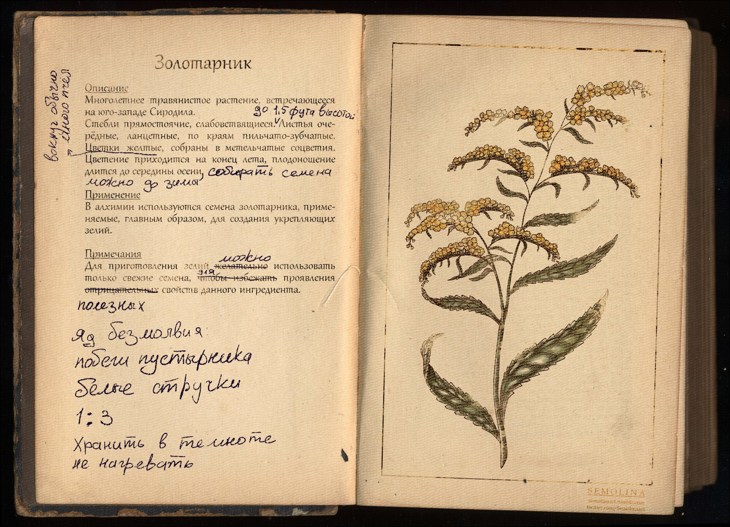 Золотарник
вокруг обычно
много пчел
Описание
Многолетнее травянистое растение, встречающееся
на юго-западе Сиродила. до 1,5 фута высотой
Стебли прямостоячие, слабоветвящиеся. Листья оче-
рёдные, ланцетные, по краям пильчато-зубчатые.
Цветки желтые, собраны в метельчатые соцветия.
Цветение приходится на конец лета, плодоношение
длится до середины осени, собирать семена
можно до зимы
Применение
В алхимии используются семена золотарника, приме-
няемые, главным образом, для создания укрепляющих
зелий.
Примечания
можно
Для приготовления зелий желательно использовать
для
только свежие семена, чтобы избежать проявления
отрицательных свойств данного ингредиента.
полезных
Яд безмолвия
побеги пустырника
белые стручки
1:3
Хранить в темноте
не нагревать
SEMOLINA